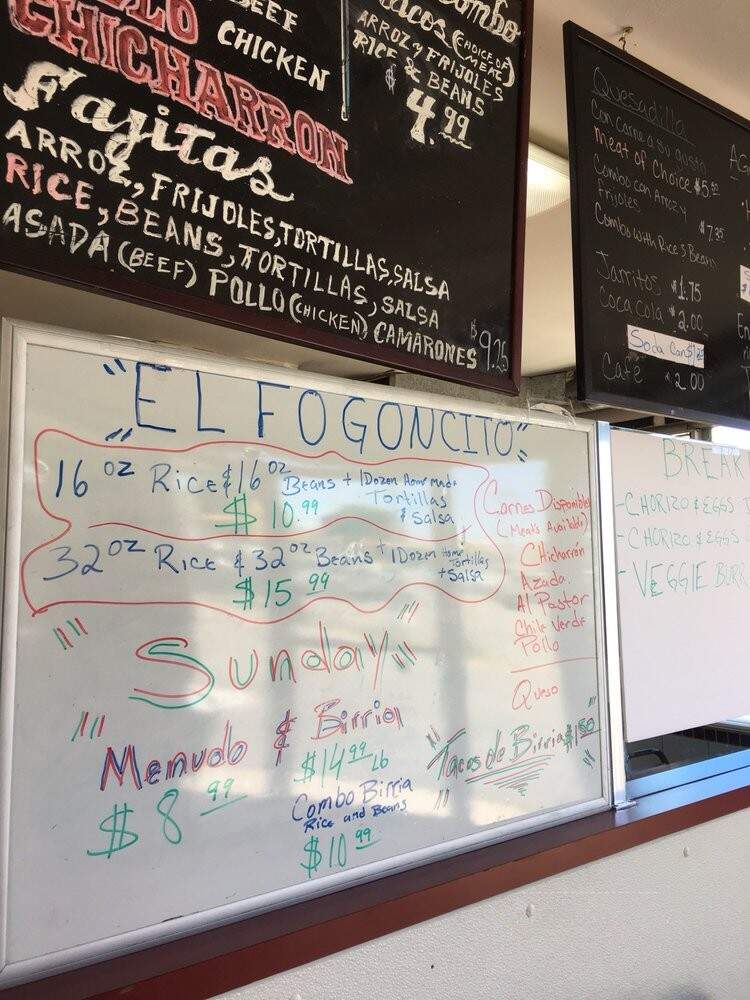 BEEF
CHICKEN
CHICHARRON
Fajitas
ARROZ, FRIJOLES, TORTILLAS, SALSA
RICE, BEANS, TORTILLAS, SALSA
ASADA (BEEF) POLLO (CHICKEN) CAMARONES $9.25
Tacos Combo
(CHOICE OF MEAT)
ARROZ Y FRIJOLES
RICE & BEANS
$4.99
Quesadilla
Con carne a su gusto
Meat of Choice $5.50
Combo con Arroz y
Frijoles $7.35
Combo with Rice & Beans
Jarritos $1.75
Coca cola $2.00
Soda Can
Café $2.00
"EL FOGONCITO"
16 oz Rice & 16 oz Beans + 1 Dozen Home made
Tortillas
& Salsa
$10.99
32 oz Rice & 32 oz Beans + 1 Dozen Home
Tortillas
+ Salsa
$15.99
Carnes Disponible
(Meats Available)
Chicharrón
Azada
Al Pastor
Chile Verde
Pollo
Queso
"Sunday"
"Menudo & Birria
$8.99
$14.99 Lb
Combo Birria
Rice and Beans
$10.99
"Tacos de Birria $1.50"
BREAK
-CHORIZO & EGGS
-CHORIZO & EGGS
-VEGGIE BURR